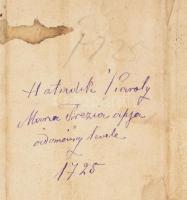 Hatodik Károly
Maria Terézia apja
adomány levele
1725